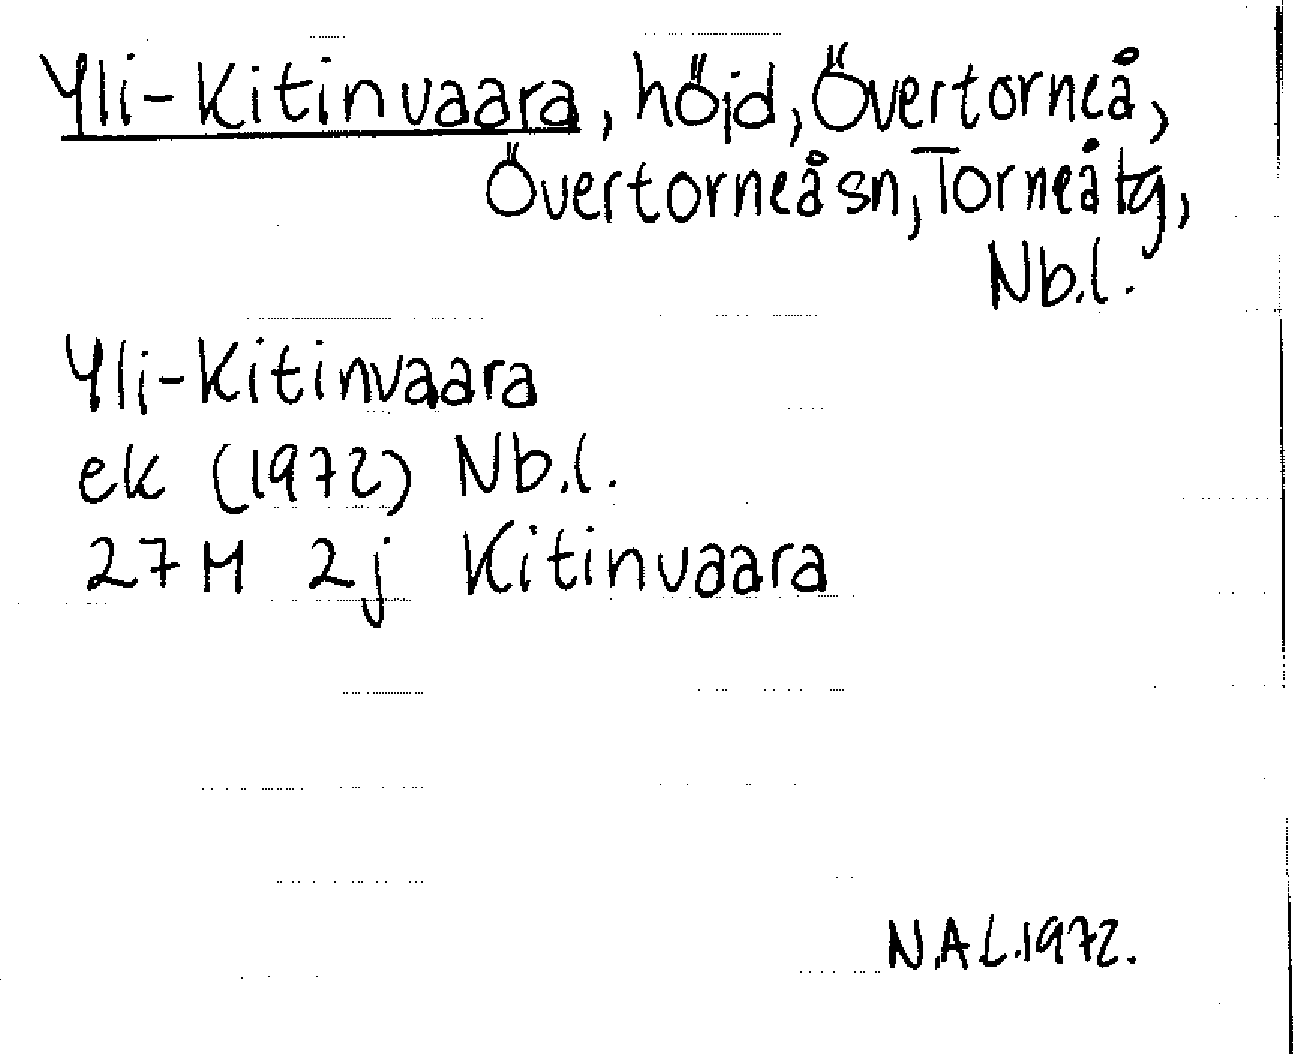 Yli-Kitinvaara, höjd, Övertorneå,
Övertorneå sn, Torneå tg,
Nb.l.
Yli-Kitinvaara
ek (1972) Nb.l.
27M 2j Kitinvaara
N.A.L.1972.